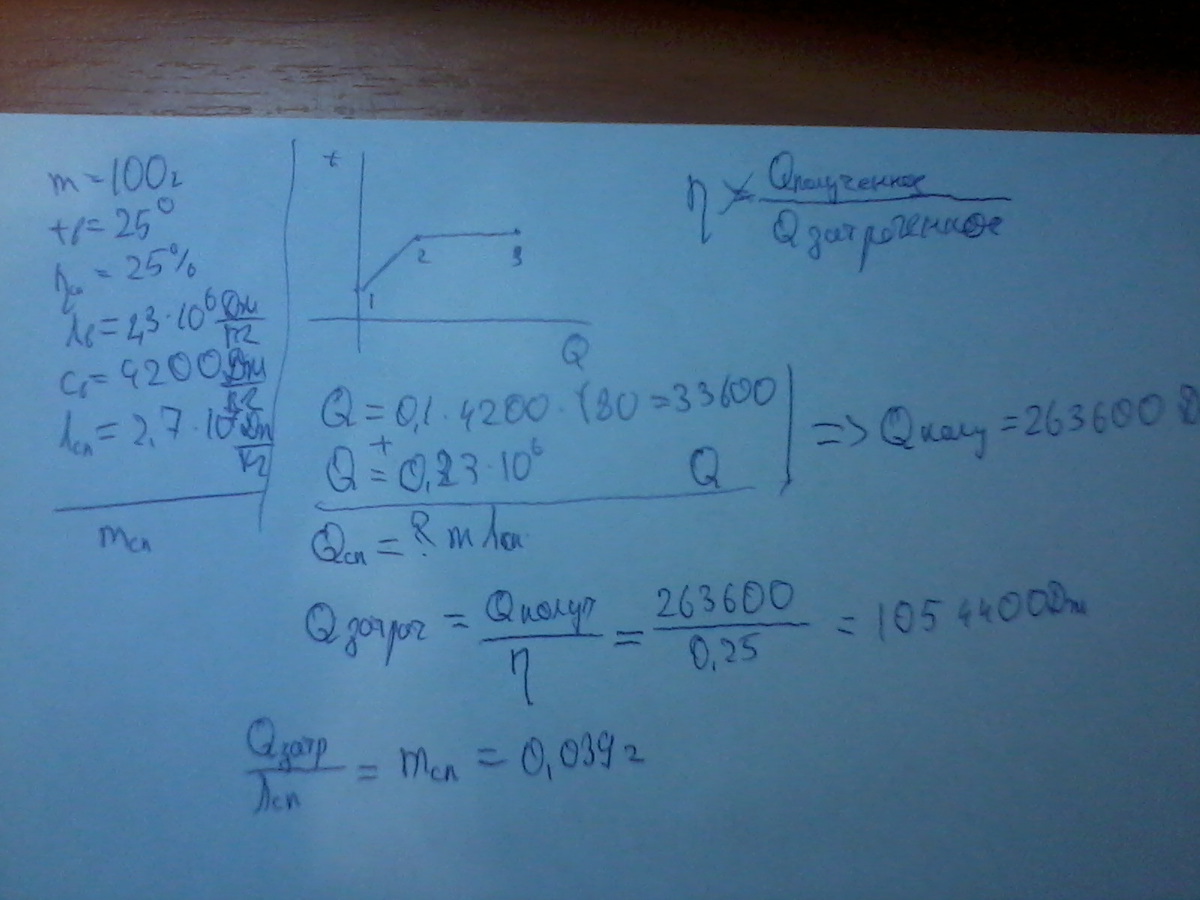 m = 100г
tв = 25°
η = 25%
λв = 2,3 · 10⁶ Дж/кг
cв = 4200 Дж/кг
λсп = 2,7 · 10 Дж/кг
mсп
t
1
2
3
Q
η = Qполученное / Qзатраченное
Q = 0,1 · 4200 · 80 = 33600
+
Q = 0,23 · 10⁶ Q
=> Qполу = 263600
Qсп = ? m λсп
Qзатрач = Qполуч / η = 263600 / 0,25 = 1054400 Дж
Qзатр / λсп = mсп = 0,039 г